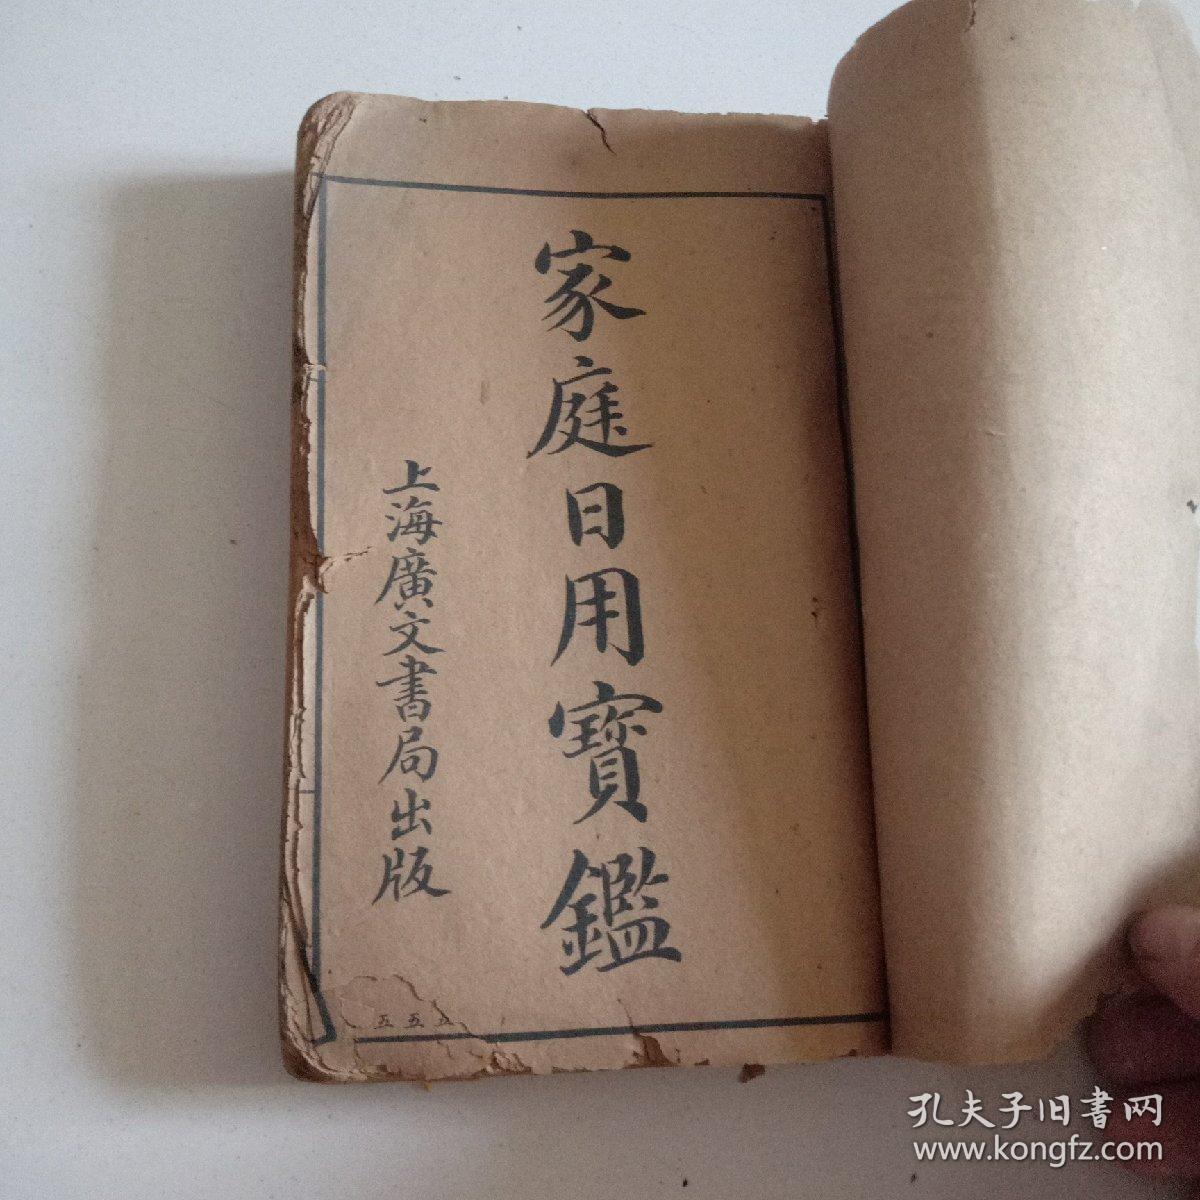 家庭日用寶鑑
上海廣文書局出版
五五五
孔夫子旧書网
www.kongfz.com